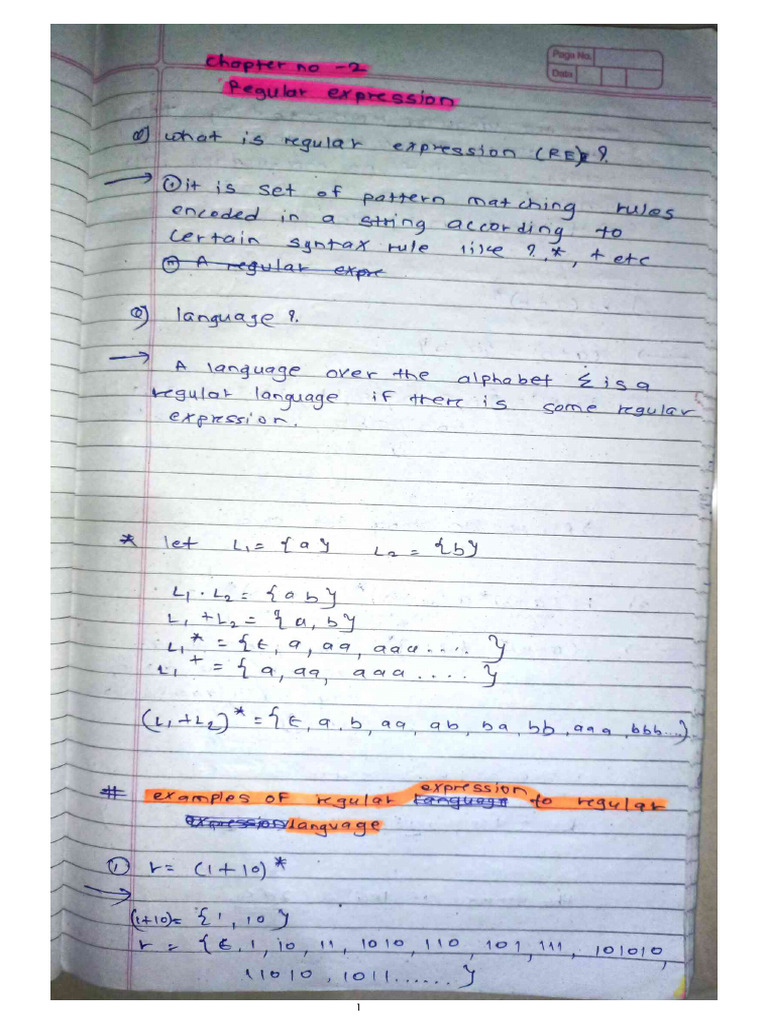 Page No.
Date
Chapter no - 2
Regular expression
Q) what is regular expression (RE)?
→ ① it is set of pattern matching rules
encoded in a string according to
certain syntax rule like ?, *, + etc
② A regular expre
Q) language ?
→
A language over the alphabet Σ is a
regular language if there is some regular
expression.
* let L₁ = {a} L₂ = {b}
L₁ . L₂ = {ab}
L₁ + L₂ = {a, b}
L₁* = {ε, a, aa, aaa....}
L₁⁺ = {a, aa, aaa....}
(L₁+L₂)* = {ε, a, b, aa, ab, ba, bb, aaa, bbb...}.
expression
# examples of regular language to regular
expression/language
① r = (1+10)*
→
(1+10) = {1, 10}
r = {ε, 1, 10, 11, 1010, 110, 101, 111, 101010,
11010, 1011......}
1